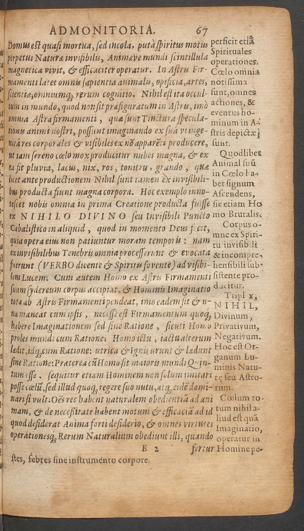 ADMONITORIA. 67
Domus est quasi mortica, sed incola, putà spiritus motus
perpetui Natura invisibilis, Anima vé mundi scintilla
magnetica vivit, & efficaciter operatur. In Astris Fir-
mamenti latet omnis sapientia animalis, opificia, artes,
scientiæ, omniumq; rerum cognitio. Nihil est ita occul-
tum in mundo, quod non sit præfiguratum in Astris, imò
omnia Astra firmamenti, quæ sunt
animi nostri, possunt imaginando ex suâ
corporales & visibiles ex nõ apparẽti producere,
ut jam sereno cœlo mox producitur nubes magna, & ex
ea fit pluvia, lacus, nix, ros, tonitru, grando, quæ
ante productionem Nihil sunt tamen & invisibili-
bus producta fiunt magna corpora. Hoc exemplo inno-
tescet nobis omnia in prima Creatione producta fuisse
ex NIHILO DIVINO seu Invisibili Puncto
Cabalistico in aliquid, quod in momento Deus fecit,
quia opera ejus non patiuntur moram temporis: nam
ex invisibilibus Tenebris omnia processerunt & evocata
fuerunt (VERBO dicente & Spiritu fovente) ad visibi-
lem Lucem. Cum autem Homo ex Astris Firmamenti
suum sydereum corpus acceperat, & Hominis Imaginatio
ab Astris Firmamenti pendeat, imò eadem sit &
cum ipsis, necesse est Firmamentum quoq;
habere Imaginationem sed sine Ratione, sicuti Homo
proles mundi cum Ratione: Homo illu
ledit, idq; cum Ratione: urtica & Ignis urunt & lædunt
sine Ratione: Præterea si Homo sit maioris mundi Quin-
tum esse, sequitur etiam Hominem non solum imitari
posse cœlũ, sed illud quoq; regere suo nutu,
naris vult: Oẽs res habent naturalem obedientiã ad ani-
mam, & de necessitate habent motum & efficaciã ad id
quod desiderat Anima forti desiderio, & omnes virtutes
operationesq; Rerum Naturalium obediunt illi, quando
E 2 fertur
perficit etiã
Spirituales
operationes.
Cœlo omnia
notissima
sunt, omnes
actiones, &
eventus ho-
minum in A-
stris depictæ
sunt.
Quodlibet
Animal suũ
in Cœlo ha-
bet signum
Ascendens,
sic etiam Ho-
mo Brutalis.
Corpus o-
mne ex Spiri-
tu invisibili
& incompre-
hensibili sub-
sistente pro-
ducitur.
Tripl x,
NIHIL,
Divinum,
Privativum,
Negativum.
Hoc est Or-
ganum Lu-
minis Natu-
ræ seu Astro-
rum.
Cœlum to-
tum nihil a-
liud est quã
Imaginatio,
operatur in
Homine pe-
stes, febres sine instrumento corpore.